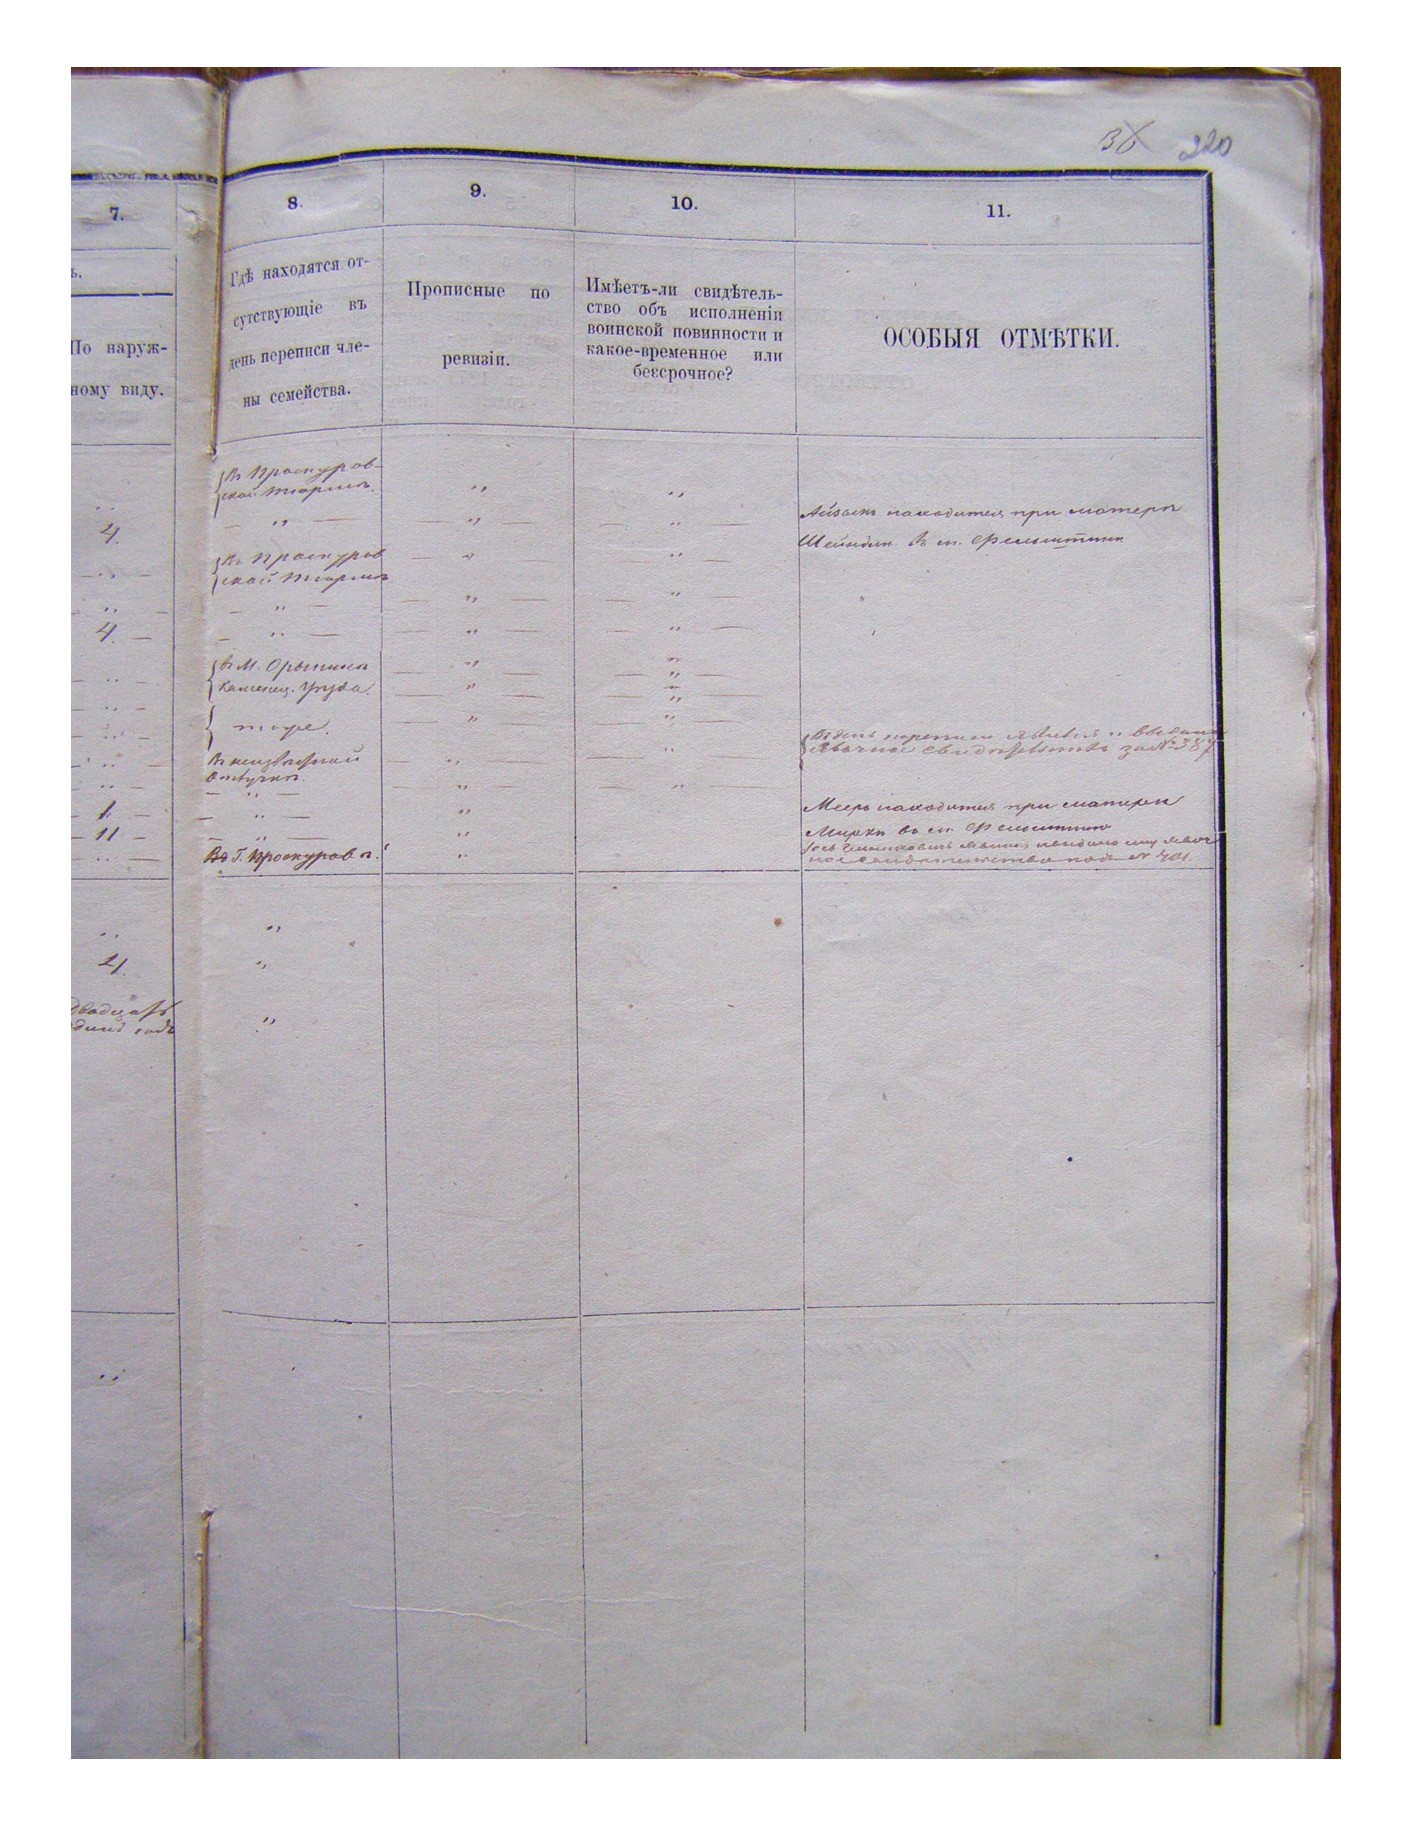 220
7.
8.
9.
10.
11.
ъ.
По наруж-
ному виду.
Гдѣ находятся от-
сутствующіе въ
день переписи чле-
ны семейства.
Прописные по
ревизіи.
Имѣетъ-ли свидѣтель-
ство объ исполненіи
воинской повинности и
какое-временное или
безсрочное?
ОСОБЫЯ ОТМѢТКИ.
Въ Проскуров-
ской тюрьмѣ.
Айзикъ находится при матери
4.
Въ м.
Въ Проскуров
ской тюрьмѣ
4.
въ М. Орынинѣ
Каменец. уѣзда.
тоже.
Въ день переписи явился и
за № 387
Въ неизвѣстной
отлучкѣ.
1.
Мееръ находится при матери
11
въ м.
Въ Г. Проскуровѣ.
под №
4.
Двадцать
одинъ годъ